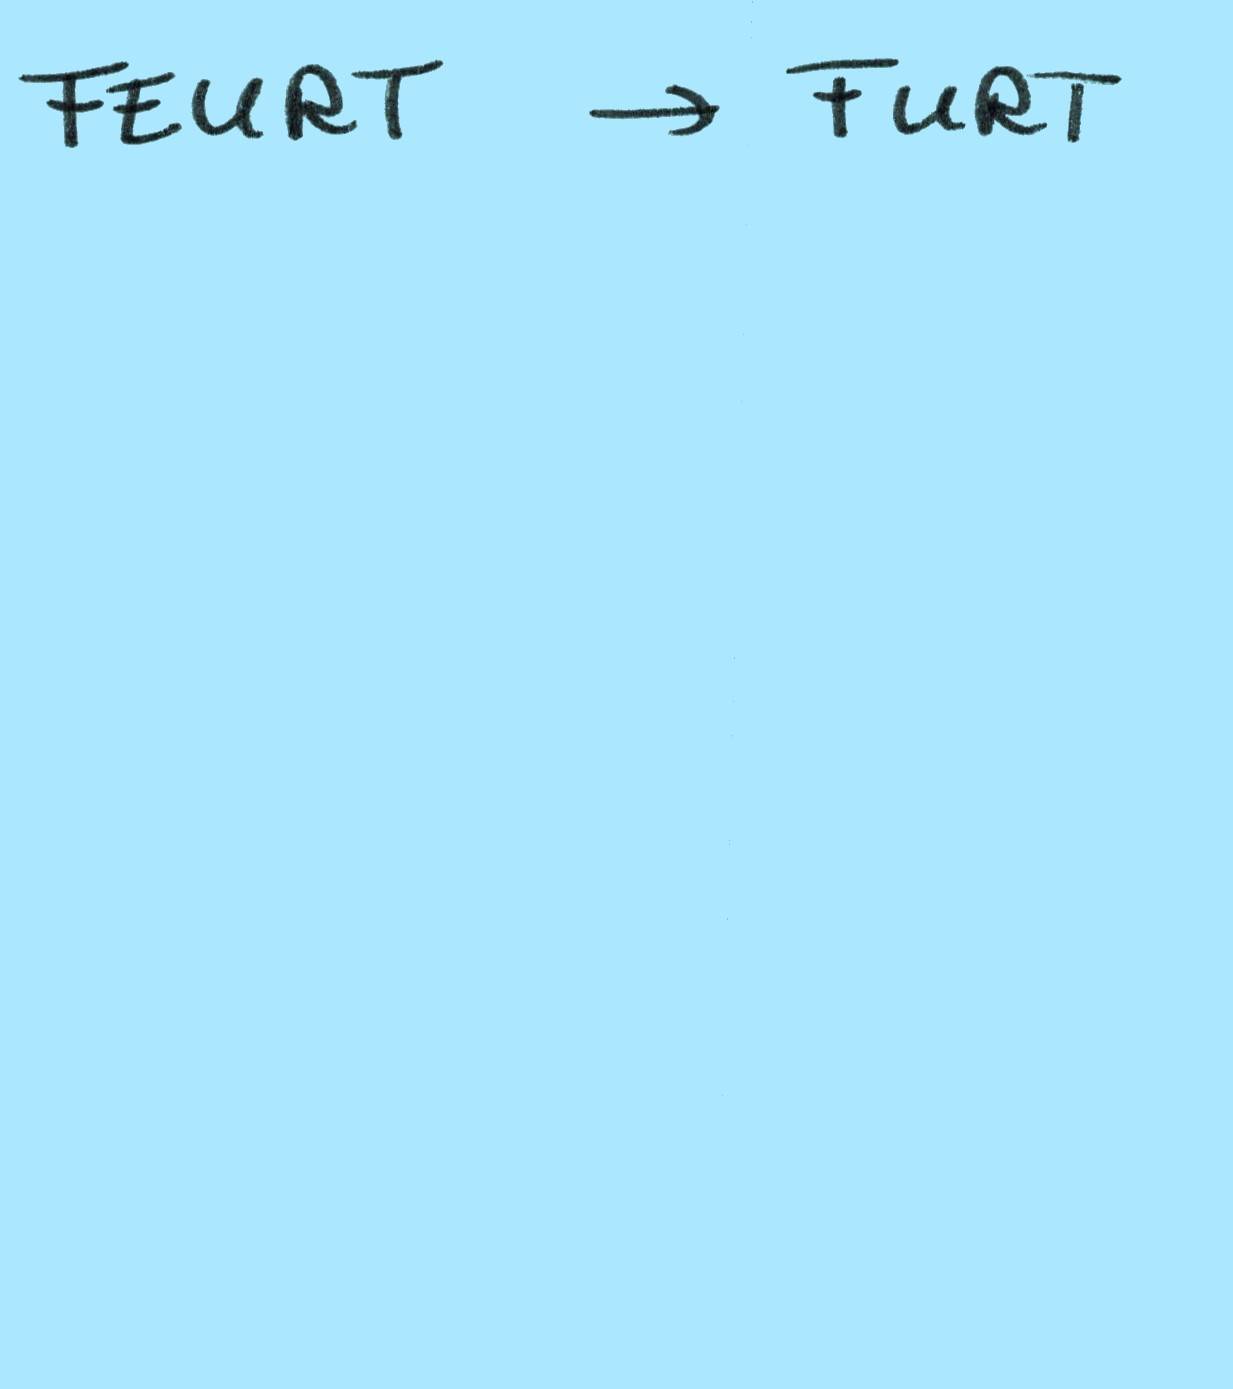 FEURT → FURT